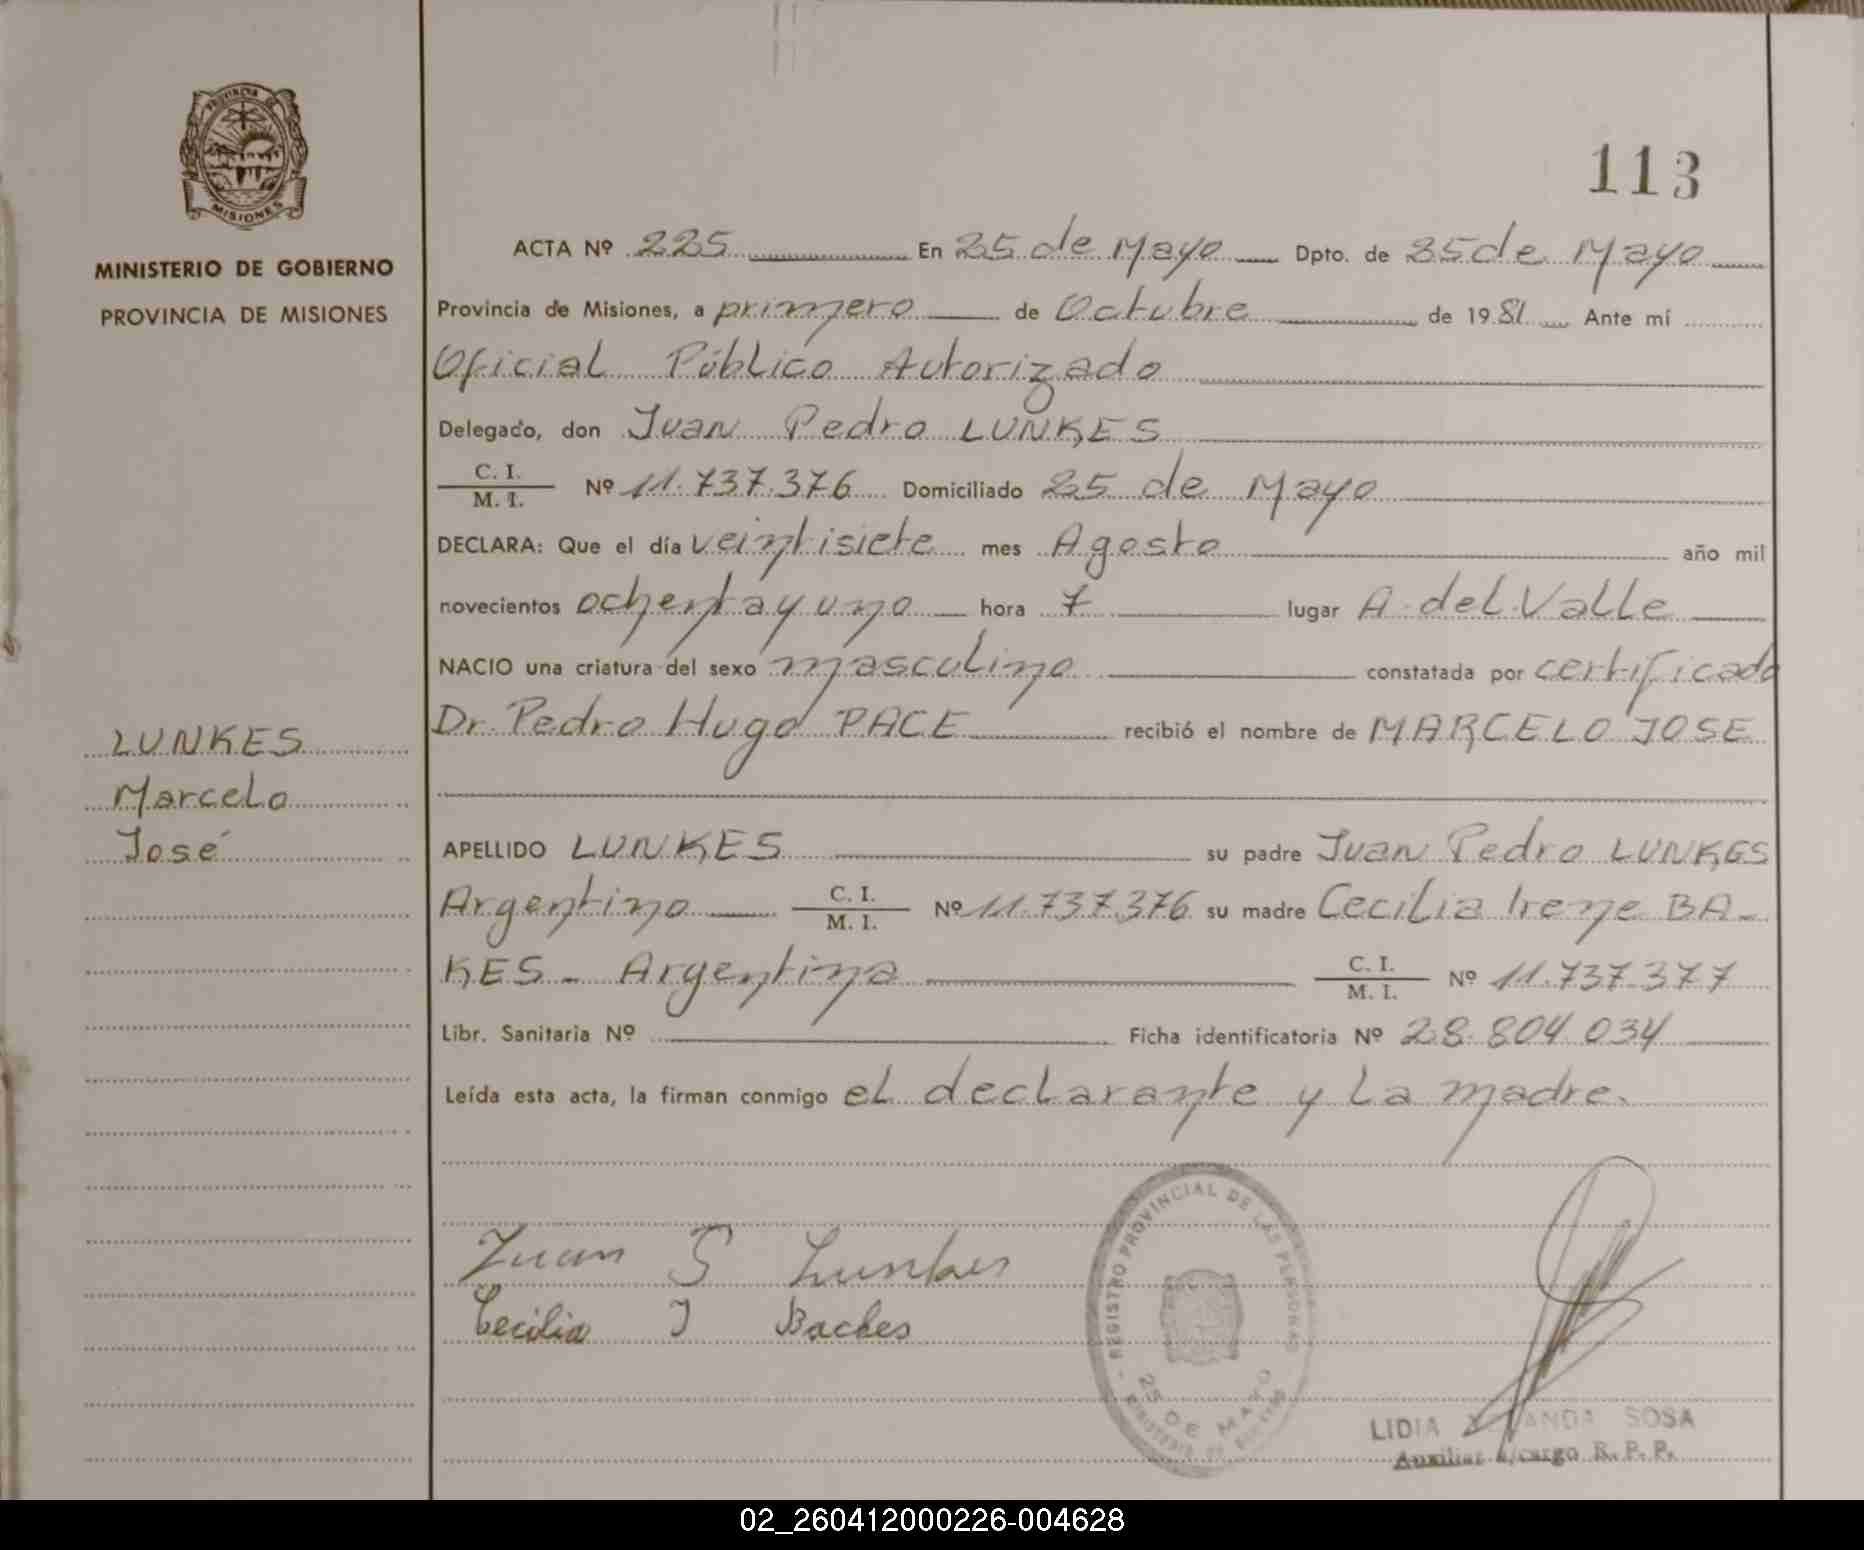 PROVINCIA DE
MISIONES
MINISTERIO DE GOBIERNO
PROVINCIA DE MISIONES
LUNKES
Marcelo
José
113
ACTA Nº 225 En 25 de Mayo Dpto. de 25 de Mayo
Provincia de Misiones, a primero de Octubre de 1981 Ante mí
Oficial Público Autorizado
Delegado, don Juan Pedro LUNKES
C. I.
M. I. Nº 11.737.376 Domiciliado 25 de Mayo
DECLARA: Que el día veintisiete mes Agosto año mil
novecientos ochenta y uno hora 7 lugar A. del Valle
NACIO una criatura del sexo masculino constatada por certificado
Dr. Pedro Hugo PACE recibió el nombre de MARCELO JOSE
APELLIDO LUNKES su padre Juan Pedro LUNKES
Argentino C. I. M. I. Nº 11.737.376 su madre Cecilia Irene BA-
KES - Argentina C. I. M. I. Nº 11.737.377
Libr. Sanitaria Nº Ficha identificatoria Nº 28.804.034
Leída esta acta, la firman conmigo el declarante y la madre.
Juan Lunkes
Cecilia J Backes
REGISTRO PROVINCIAL DE LAS PERSONAS
25 DE MAYO
LIDIA SOSA
Auxiliar a/cargo R. P. P.
02_260412000226-004628